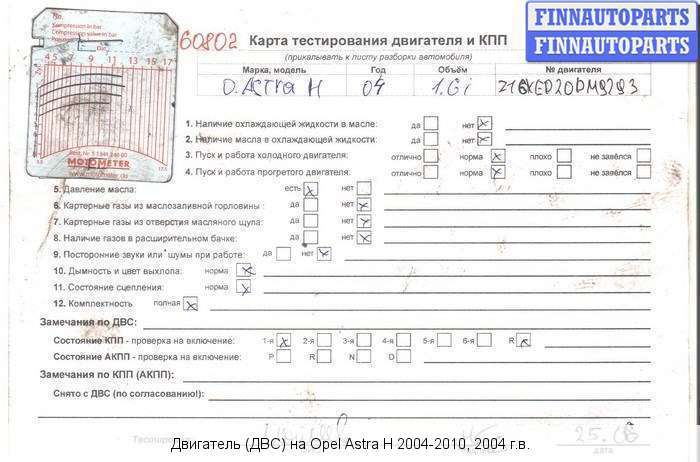 FINNAUTOPARTS
FINNAUTOPARTS
Compression in bar
60802
Карта тестирования двигателя и КПП
(прикалывать к листу разборки автомобиля)
Марка, модель Год Объём № двигателя
O. ASTRA H 04
1. Наличие охлаждающей жидкости в масле: да нет
2. Наличие масла в охлаждающей жидкости: да нет
3. Пуск и работа холодного двигателя: отлично норма плохо не завёлся
4. Пуск и работа прогретого двигателя: отлично норма плохо не завёлся
5. Давление масла: есть нет
6. Картерные газы из маслозаливной горловины: да нет
7. Картерные газы из отверстия масляного щупа: да нет
8. Наличие газов в расширительном бачке: да нет
9. Посторонние звуки или шумы при работе: да нет
10. Дымность и цвет выхлопа: норма
11. Состояние сцепления: норма
12. Комплектность полная
MOTOMETER
www.motometer.de
Замечания по ДВС:
Состояние КПП - проверка на включение: 1-я 2-я 3-я 4-я 5-я 6-я R
Состояние АКПП - проверка на включение: P R N D
Замечания по КПП (АКПП):
Снято с ДВС (по согласованию!):
25.08
дата
Двигатель (ДВС) на Opel Astra H 2004-2010, 2004 г.в.